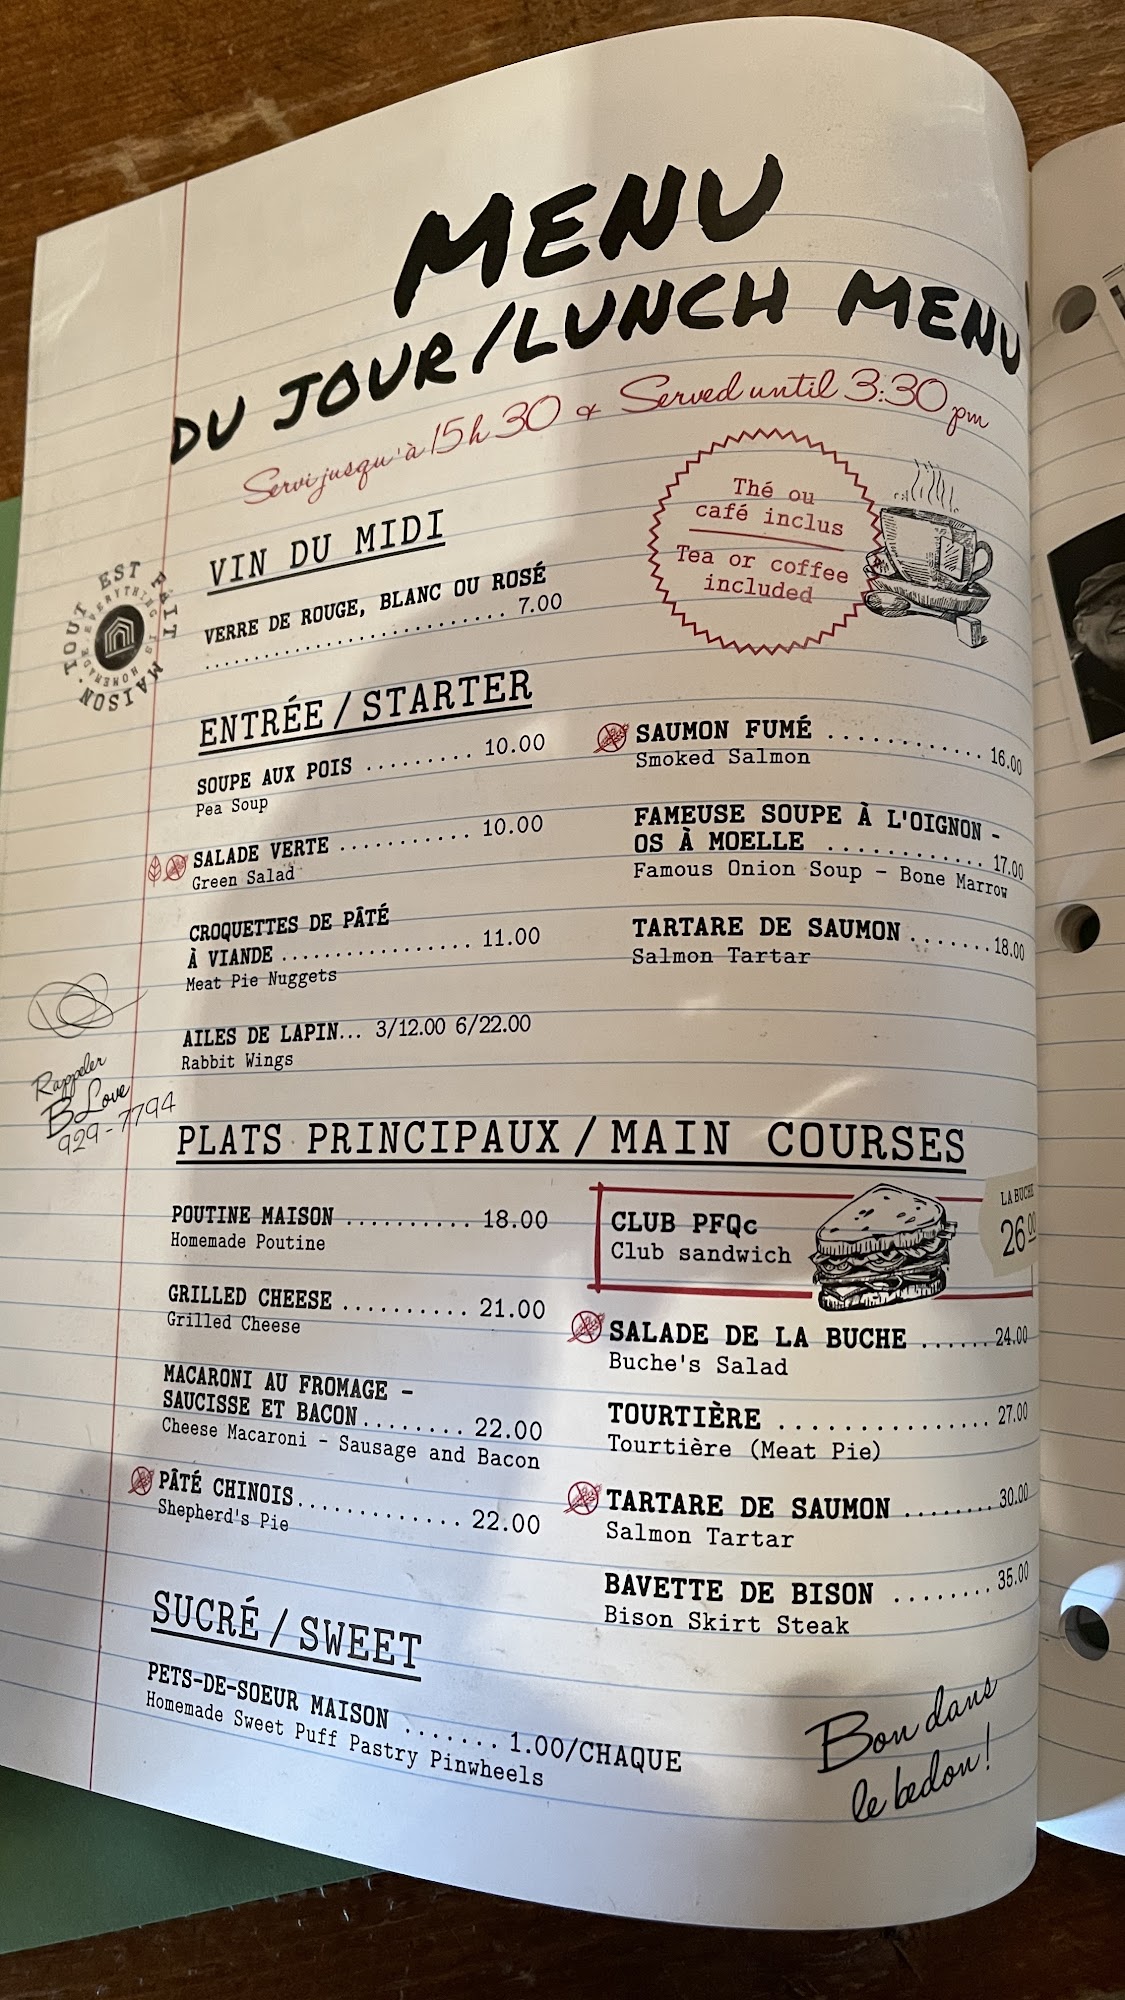 MENU
DU JOUR/LUNCH MENU
Servi jusqu'à 15h30 & Served until 3:30 pm
Thé ou
café inclus
Tea or coffee
included
VIN DU MIDI
VERRE DE ROUGE, BLANC OU ROSÉ
.............................. 7.00
TOUT EST FAIT MAISON.
EVERYTHING IS HOMEMADE
ENTRÉE / STARTER
SOUPE AUX POIS ......... 10.00
Pea Soup
SALADE VERTE ........... 10.00
Green Salad
CROQUETTES DE PÂTÉ
À VIANDE ................ 11.00
Meat Pie Nuggets
AILES DE LAPIN... 3/12.00 6/22.00
Rabbit Wings
SAUMON FUMÉ ............ 16.00
Smoked Salmon
FAMEUSE SOUPE À L'OIGNON -
OS À MOELLE ............ 17.00
Famous Onion Soup - Bone Marrow
TARTARE DE SAUMON ....... 18.00
Salmon Tartar
Rappeler
B Love
929-7794
PLATS PRINCIPAUX / MAIN COURSES
POUTINE MAISON .......... 18.00
Homemade Poutine
GRILLED CHEESE .......... 21.00
Grilled Cheese
MACARONI AU FROMAGE -
SAUCISSE ET BACON ........ 22.00
Cheese Macaroni - Sausage and Bacon
PÂTÉ CHINOIS ............. 22.00
Shepherd's Pie
CLUB PFQc
Club sandwich
LA BUCHE
26.00
SALADE DE LA BUCHE ...... 24.00
Buche's Salad
TOURTIÈRE ............... 27.00
Tourtière (Meat Pie)
TARTARE DE SAUMON ........ 30.00
Salmon Tartar
BAVETTE DE BISON ........ 35.00
Bison Skirt Steak
SUCRÉ / SWEET
PETS-DE-SOEUR MAISON ....... 1.00/CHAQUE
Homemade Sweet Puff Pastry Pinwheels
Bon dans
le bedon!